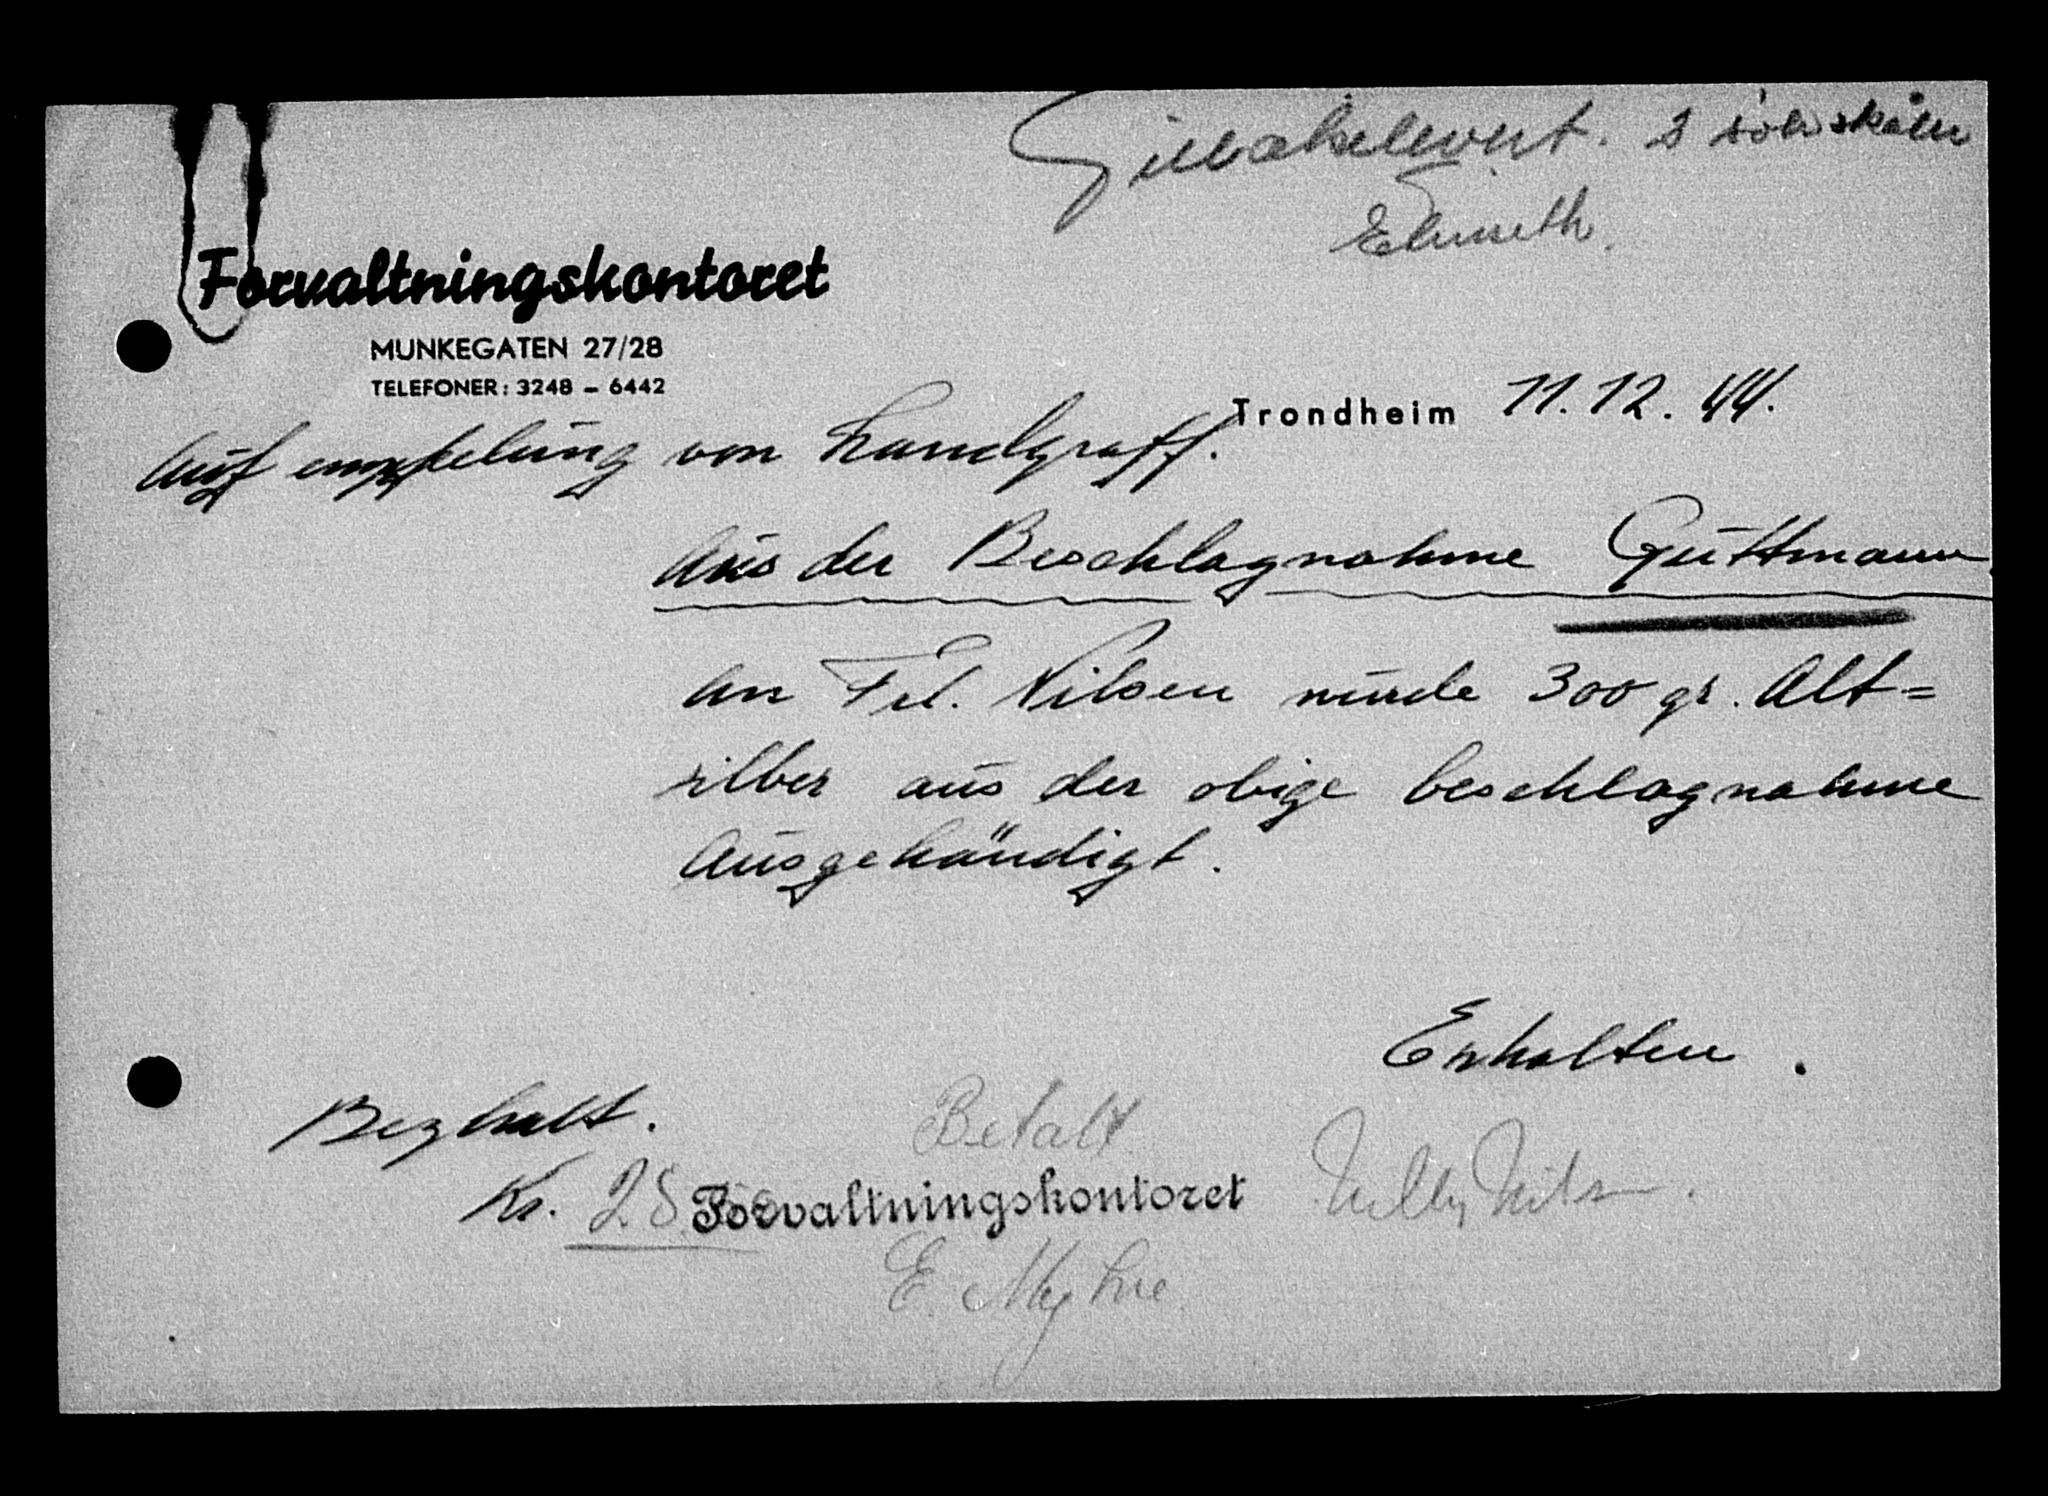 Tilbakelevert. 2 sølvskåler
Forvaltningskontoret
MUNKEGATEN 27/28
TELEFONER: 3248 – 6442
Trondheim 11.12.44.
Auf empfelung von Landgraff.
Aus der Beschlagnahme Guttmann
an Frl. Nilsen wurde 300 gr. Alt=
silber aus der obige beschlagnahme
Ausgehändigt.
Erhalten.
Bezhalt.
Betalt
Kr. 28
Forvaltningskontoret
Nilsen.
E. Myhre